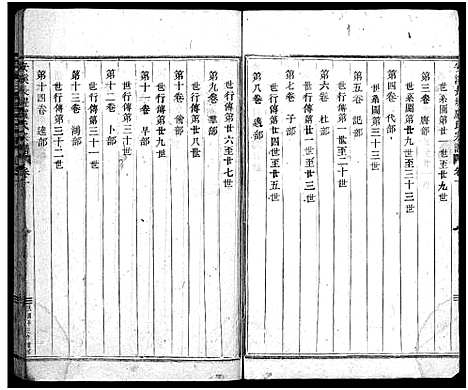 世系圖第廿一世至廿九世
第三卷 唐部
世系圖第廿九世至三十三世
第四卷 代部
世系圖第三十三世
第五卷 記部
世行傳第一世至廿五世
第六卷 杜部
世行傳第一世至二十世
第七卷 子部
世行傳第廿四世至廿五世
第八卷 遠部
世行傳第廿六至廿七世
第九卷 羣部
世行傳第廿八世
第十卷 前部
世行傳第廿九世
第十一卷 早部
世行傳第三十世
第十二卷 卜部
世行傳第三十一世
第十三卷 鴻部
世行傳第三十二世
第十四卷 遠部